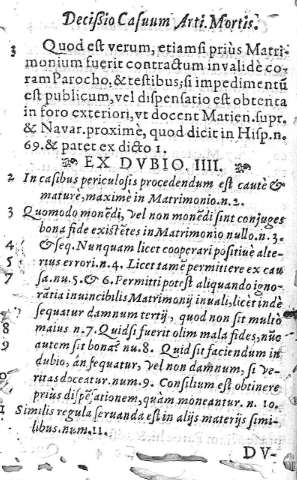 Decissio Casuum Arti. Mortis.
3 Quod est verum, etiamsi priùs Matri-
monium fuerit contractum inualidè co-
ram Parocho, & testibus; si impedimentũ
est publicum, vel dispensatio est obtenta
in foro exteriori, vt docent Matien. supr.
& Nauar. proximè, quod dicit in Hisp. n.
69. & patet ex dicto 1.
EX DVBIO. IIII.
2 In casibus periculosis procedendum est cautè &
mature, maximè in Matrimonio. n. 2.
3 Quomodo monẽdi, vel non monẽdi sint conjuges
bona fide existẽtes in Matrimonio nullo. n. 3.
4 & seq. Nunquam licet cooperari positiuè alte-
5 rius errori. n. 4. Licet tamẽ permittere ex cau
sa. nu. 5. & 6. Permitti potest aliquando igno-
7 rãtia inuincibilis Matrimonij inuali; licet indè
sequatur damnum tertij, quod non sit multò
8 maius n. 7. Quid si fuerit olim mala fides, nũc
9 autem sit bona? nu. 8. Quid sit faciendum in
dubio, àn sequatur, vel non damnum, si ve-
ritas doceatur. num. 9. Consilium est obtinere
prius dispẽsationem, quàm moneantur. n. 10.
Similis regula seruanda est in alijs materijs simi-
libus. num. 11.
DV-